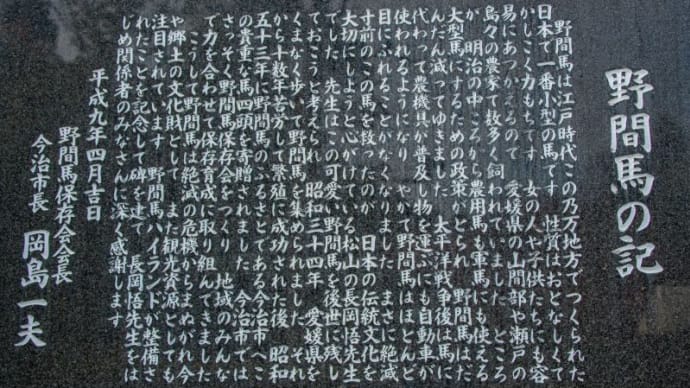 野間馬の記
野間馬は江戸時代この乃万地方でつくられた
日本で一番小型の馬です 性質はおとなしくて
かしこく力もちです 女の人や子供たちにも容
易にあつかえるので 愛媛県の山間部や瀬戸の
島々の農家で数多く飼われていました ところ
が 明治の中ごろから農用馬も軍馬にも使える
大型馬にするための政策がとられ 野間馬はだ
んだん減ってゆきました 太平洋戦争後は馬に
代わって農機具が普及し物を運ぶにも自動車が
使われるようになり やがて野間馬はほとんど
目にふれることがなくなりました まさに絶滅
寸前のこの馬を救ったのが 日本の伝統文化を
大切にしようと心がけている松山の長岡悟先生
でした 先生はこの可愛い野間馬を後世に残し
ておこうと考えられ 昭和三十四年 愛媛県を
くまなく歩いて野間馬を集められました それ
から十数年苦労して繁殖に成功された後 昭和
五十三年に野間馬のふるさとである今治市へこ
の貴重な馬四頭を寄贈されました 今治市では
さっそく野間馬保存会をつくり 地域のみんな
で力を合わせて保存育成に取り組んできました
こうして野間馬は絶滅の危機からまぬがれ今
や郷土の文化財として また観光資源としても
注目されています 野間馬ハイランドが整備さ
れたことを記念して碑を建て 長岡悟先生をは
じめ関係者のみなさんに深く感謝します
平成九年四月吉日
野間馬保存会会長
今治市長 岡島一夫